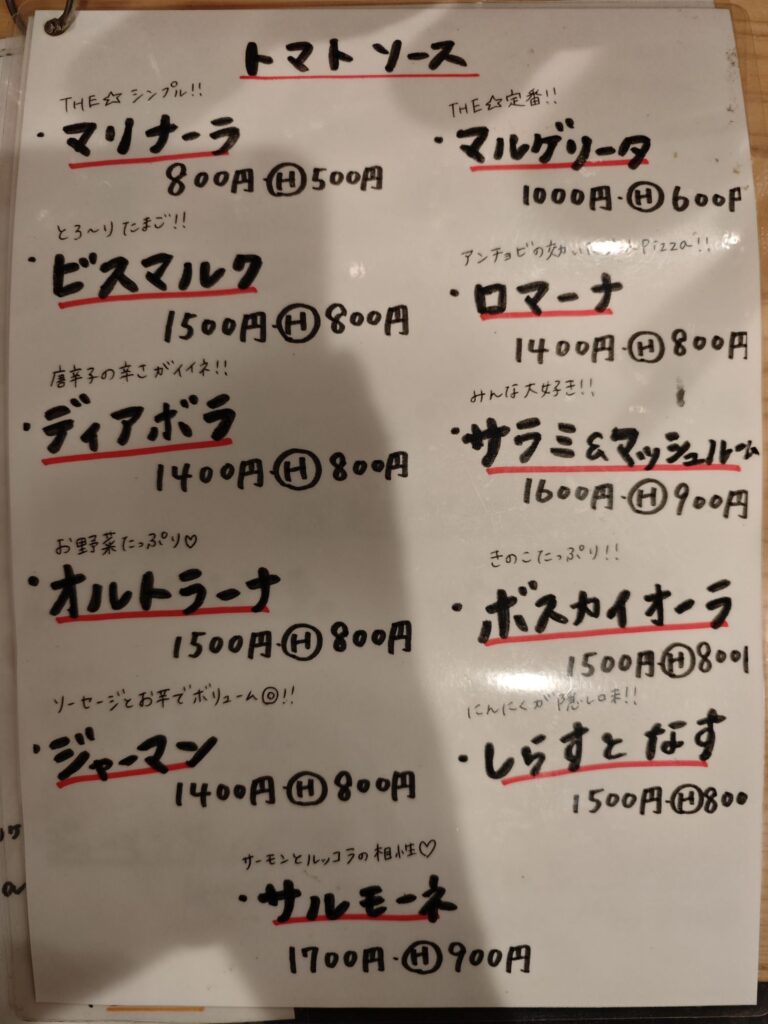 トマトソース
THE☆シンプル!!
・マリナーラ
800円・Ⓗ500円
THE☆定番!!
・マルゲリータ
1000円・Ⓗ600円
とろ〜りたまご!!
・ビスマルク
1500円・Ⓗ800円
アンチョビの効いた Pizza!!
・ロマーナ
1400円・Ⓗ800円
唐辛子の辛さがイイネ!!
・ディアボラ
1400円・Ⓗ800円
みんな大好き!!
・サラミ&マッシュルーム
1600円・Ⓗ900円
お野菜たっぷり♡
・オルトラーナ
1500円・Ⓗ800円
きのこたっぷり!!
・ボスカイオーラ
1500円・Ⓗ800
ソーセージとお芋でボリューム◎!!
・ジャーマン
1400円・Ⓗ800円
にんにくが隠し味!!
・しらすとなす
1500円・Ⓗ800
サーモンとルッコラの相性♡
・サルモーネ
1700円・Ⓗ900円